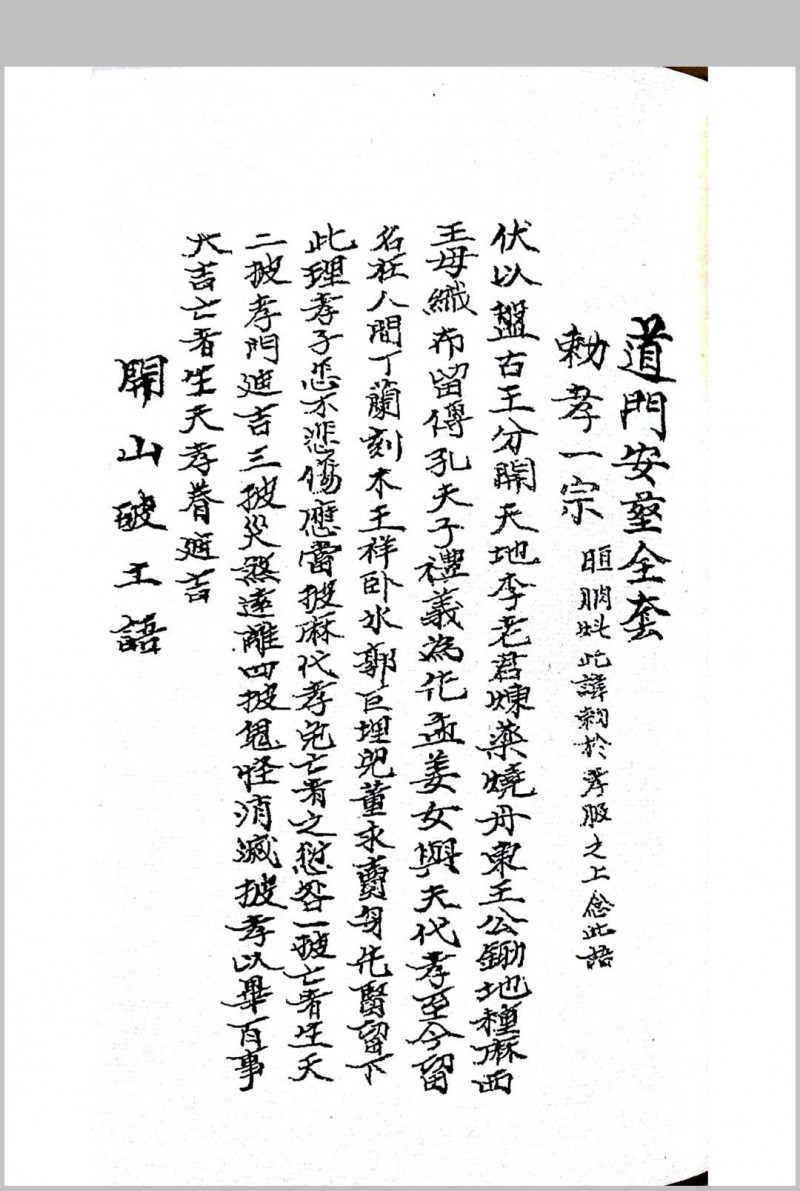 道門安塟全套
勅孝一宗 此諱勅於孝服之上念此語
伏以盤古王分開天地李老君煉薬燒丹東王公鋤地種麻西
王母織布留傳孔夫子禮義為化孟姜女與夫代孝至今留
名在人間丁蘭刻木王祥卧氷郭巨埋児董永賣身先賢留下
此理孝子恐不悲傷應當披麻代孝免亡者之愆咎一披亡者生天
二披孝門迪吉三披災煞遠離四披鬼怪消滅披孝以畢百事
大吉亡者生天孝眷迪吉
開山破土語